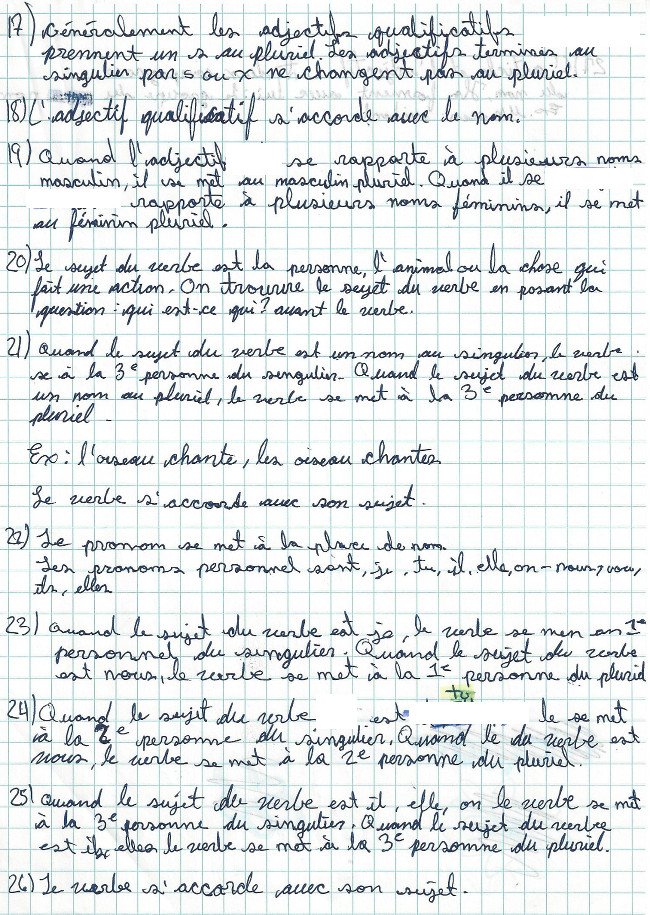 17) Généralement les adjectifs qualificatifs
prennent un s au pluriel. Les adjectifs terminés au
singulier par s ou x ne changent pas au pluriel.
18) L'adjectif qualificatif s'accorde avec le nom.
19) Quand l'adjectif se rapporte à plusieurs noms
masculin, il se met au masculin pluriel. Quand il se
rapporte à plusieurs noms féminins, il se met
au féminin pluriel.
20) Le sujet du verbe est la personne, l'animal ou la chose qui
fait une action. On trouve le sujet du verbe en posant la
question : qui est-ce qui? avant le verbe.
21) Quand le sujet du verbe est un nom au singulier, le verbe
se à la 3e personne du singulier. Quand le sujet du verbe est
un nom au pluriel, le verbe se met à la 3e personne du
pluriel.
Ex : l'oiseau chante, les oiseau chantes
Le verbe s'accorde avec son sujet.
22) Le pronom se met à la place de nom.
Les pronoms personnel sont, je, tu, il, elle, on - nous, vous,
ils, elles
23) Quand le sujet du verbe est je, le verbe se men en 1e
personnel du singulier. Quand le sujet du verbe
est nous, le verbe se met à la 1e personne du pluriel
tu
24) Quand le sujet du verbe est le se met
à la 2e personne du singulier. Quand le du verbe est
vous, le verbe se met à la 2e personne du pluriel.
25) Quand le sujet du verbe est il, elle, on le verbe se met
à la 3e personne du singulier. Quand le sujet du verbe
est ils, elles le verbe se met à la 3e personne du pluriel.
26) Le verbe s'accorde avec son sujet.